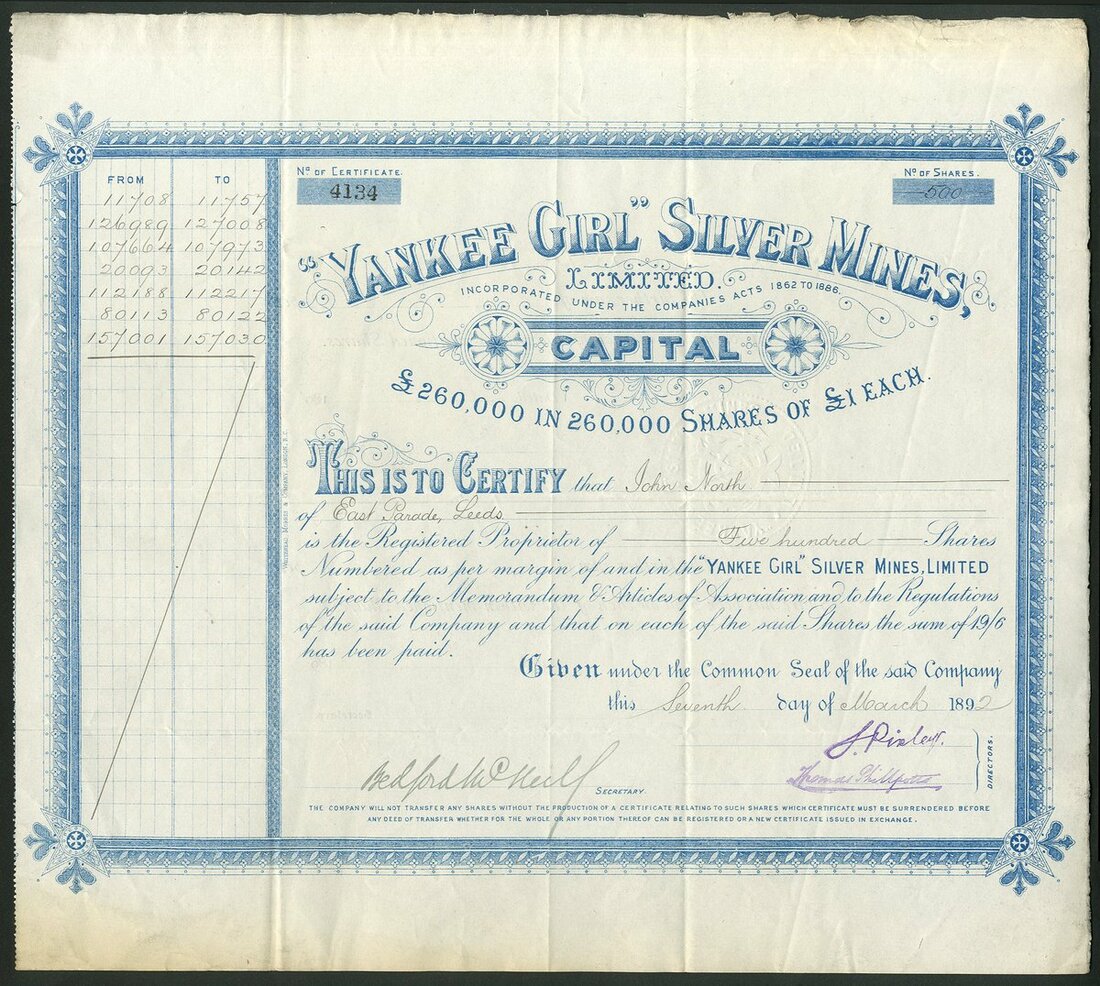 FROM TO
11708 11757
126989 127008
107664 107973
20093 20142
112188 112217
80113 80122
157001 157030
Nº OF CERTIFICATE.
4134
Nº OF SHARES.
500
"YANKEE GIRL" SILVER MINES,
LIMITED.
INCORPORATED UNDER THE COMPANIES ACTS 1862 TO 1886.
CAPITAL
£260,000 IN 260,000 SHARES OF £1 EACH.
THIS IS TO CERTIFY that John North
of East Parade, Leeds
is the Registered Proprietor of Five hundred Shares
Numbered as per margin of and in the "YANKEE GIRL" SILVER MINES, LIMITED
subject to the Memorandum & Articles of Association and to the Regulations
of the said Company and that on each of the said Shares the sum of 19/6
has been paid.
Given under the Common Seal of the said Company
this Seventh day of March 1892
Thomas Phillpotts
DIRECTORS.
Bedford McNeill
SECRETARY.
THE COMPANY WILL NOT TRANSFER ANY SHARES WITHOUT THE PRODUCTION OF A CERTIFICATE RELATING TO SUCH SHARES WHICH CERTIFICATE MUST BE SURRENDERED BEFORE
ANY DEED OF TRANSFER WHETHER FOR THE WHOLE OR ANY PORTION THEREOF CAN BE REGISTERED OR A NEW CERTIFICATE ISSUED IN EXCHANGE.